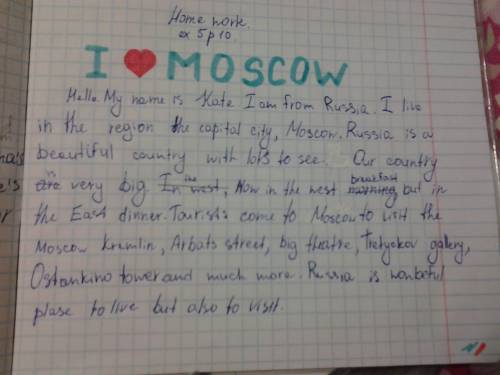 Home work.
ex 5 p 10
I ❤ MOSCOW
Hello. My name is Kate. I am from Russia. I live
in the region the capital city, Moscow. Russia is a
beautiful country with lots to see. Our country
is very big. In the west, Now in the west breakfast but in
the East dinner. Tourists come to Moscow to visit the
Moscow kremlin, Arbats street, big theatre, Tretyokov gallery,
Ostankino tower and much more. Russia is wonbeful
plase to live but also to visit.